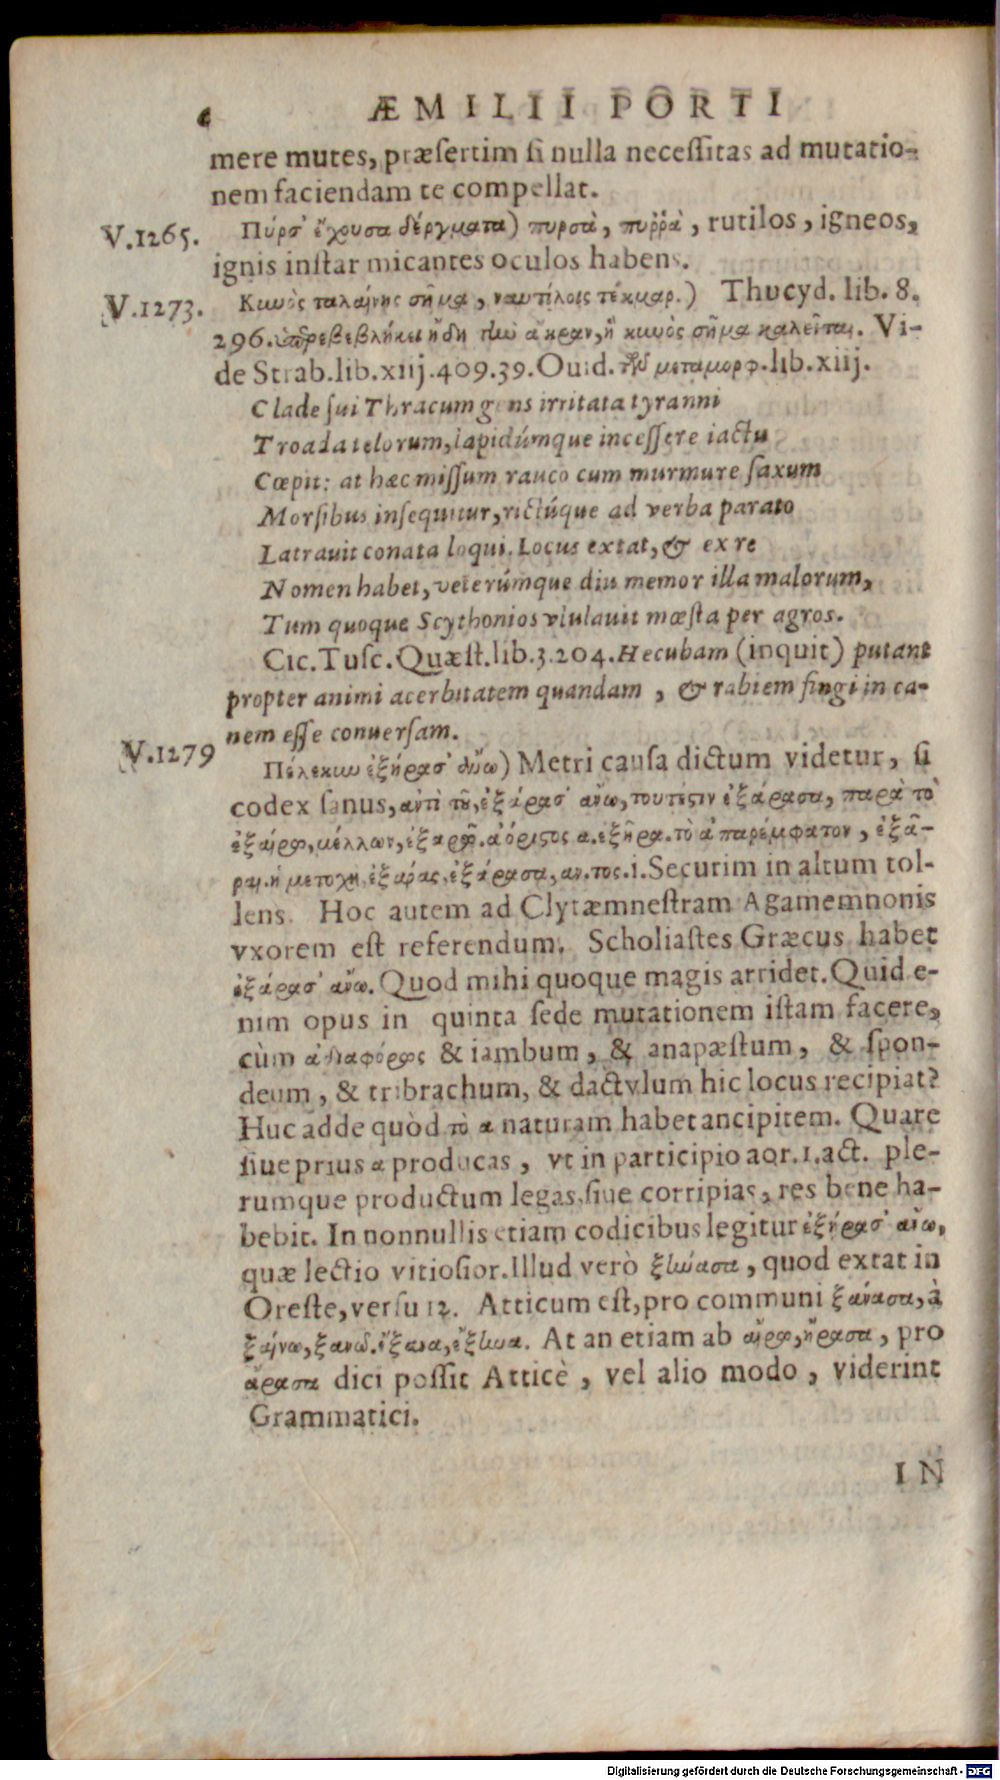 6 ÆMILII PORTI
mere mutes, præsertim si nulla necessitas ad mutatio-
nem faciendam te compellat.
V.1265. Πύρσ' ἔχουσα δέργματα) πυρσὰ, πυῤῥὰ, rutilos, igneos,
ignis instar micantes oculos habens.
V.1273. Κυνὸς ταλαίνης σῆμα, ναυτίλοις τέκμαρ.) Thucyd. lib. 8.
296. παρεβεβλήκει ἤδη τὴν ἄκραν, ἣ κυνὸς σῆμα καλεῖται. Vi-
de Strab. lib. xiij. 409. 39. Ouid. τῶν μεταμορφ. lib. xiij.
Clade sui Thracum gens irritata tyranni
Troada telorum, lapidúmque incessere iactu
Cœpit: at hæc missum rauco cum murmure saxum
Morsibus insequitur, rictúque ad verba parato
Latrauit conata loqui. Locus extat, & ex re
Nomen habet, veterúmque diu memor illa malorum,
Tum quoque Scythonios vlulauit mœsta per agros.
Cic. Tusc. Quæst. lib. 3. 204. Hecubam (inquit) putant
propter animi acerbitatem quandam, & rabiem fingi in ca-
nem esse conuersam.
V.1279 Πέλεκυν ἐξήρασ' ἄνω) Metri causa dictum videtur, si
codex sanus, ἀντὶ τοῦ, ἐξάρασ' ἄνω, τουτέστιν ἐξάρασα, παρὰ τὸ
ἐξαίρω, μέλλων, ἐξαρῶ. ἀόριστος α. ἐξῆρα. τὸ ἀπαρέμφατον, ἐξᾶ-
ραι. ἡ μετοχὴ, ἐξάρας, ἐξάρασα, αν. τος. i. Securim in altum tol-
lens. Hoc autem ad Clytæmnestram Agamemnonis
vxorem est referendum. Scholiastes Græcus habet
ἐξάρασ' ἄνω. Quod mihi quoque magis arridet. Quid e-
nim opus in quinta sede mutationem istam facere,
cùm ἀδιαφόρως & iambum, & anapæstum, & spon-
deum, & tribrachum, & dactylum hic locus recipiat?
Huc adde quòd τὸ α naturam habet ancipitem. Quare
siue prius α producas, vt in participio aor. 1. act. ple-
rumque productum legas, siue corripias, res bene ha-
bebit. In nonnullis etiam codicibus legitur ἐξήρασ' ἄνω,
quæ lectio vitiosior. Illud verò ξήνασα, quod extat in
Oreste, versu 12. Atticum est, pro communi ξάνασα, à
ξαίνω, ξανῶ. ἔξανα, ἔξηνα. At an etiam ab αἴρω, ἤρασα, pro
ἄρασα dici possit Atticè, vel alio modo, viderint
Grammatici.
IN
Digitalisierung gefördert durch die Deutsche Forschungsgemeinschaft - DFG